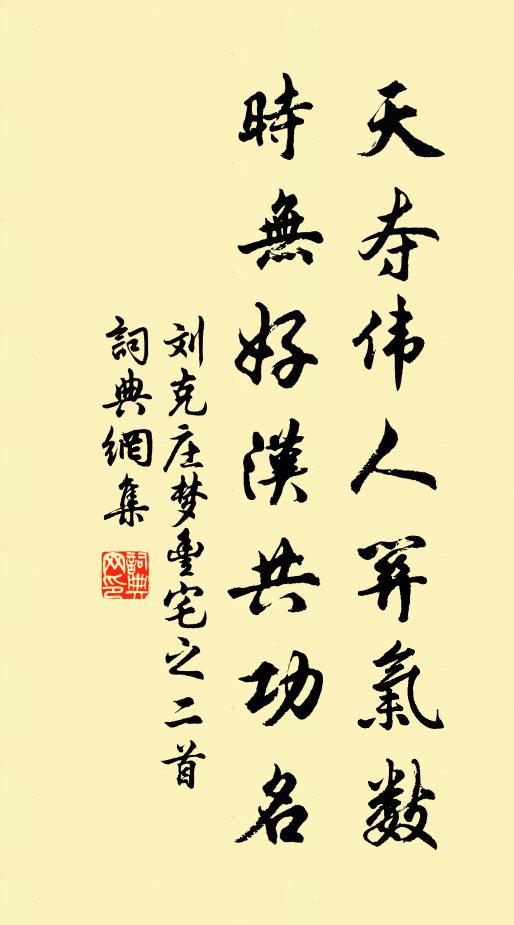 天夺伟人関氣数
時無好漢共功名
刘克庄梦豐宅之二首
詞典網集
詞典网印